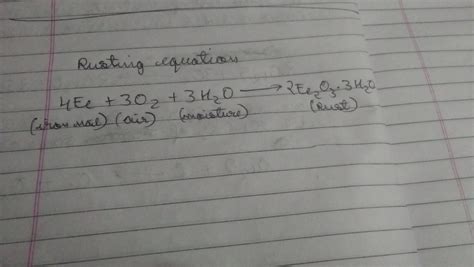 Rusting equation
4Fe + 3O2 + 3H2O → 2Fe2O3·3H2O
(iron nail) (air) (moisture) (rust)